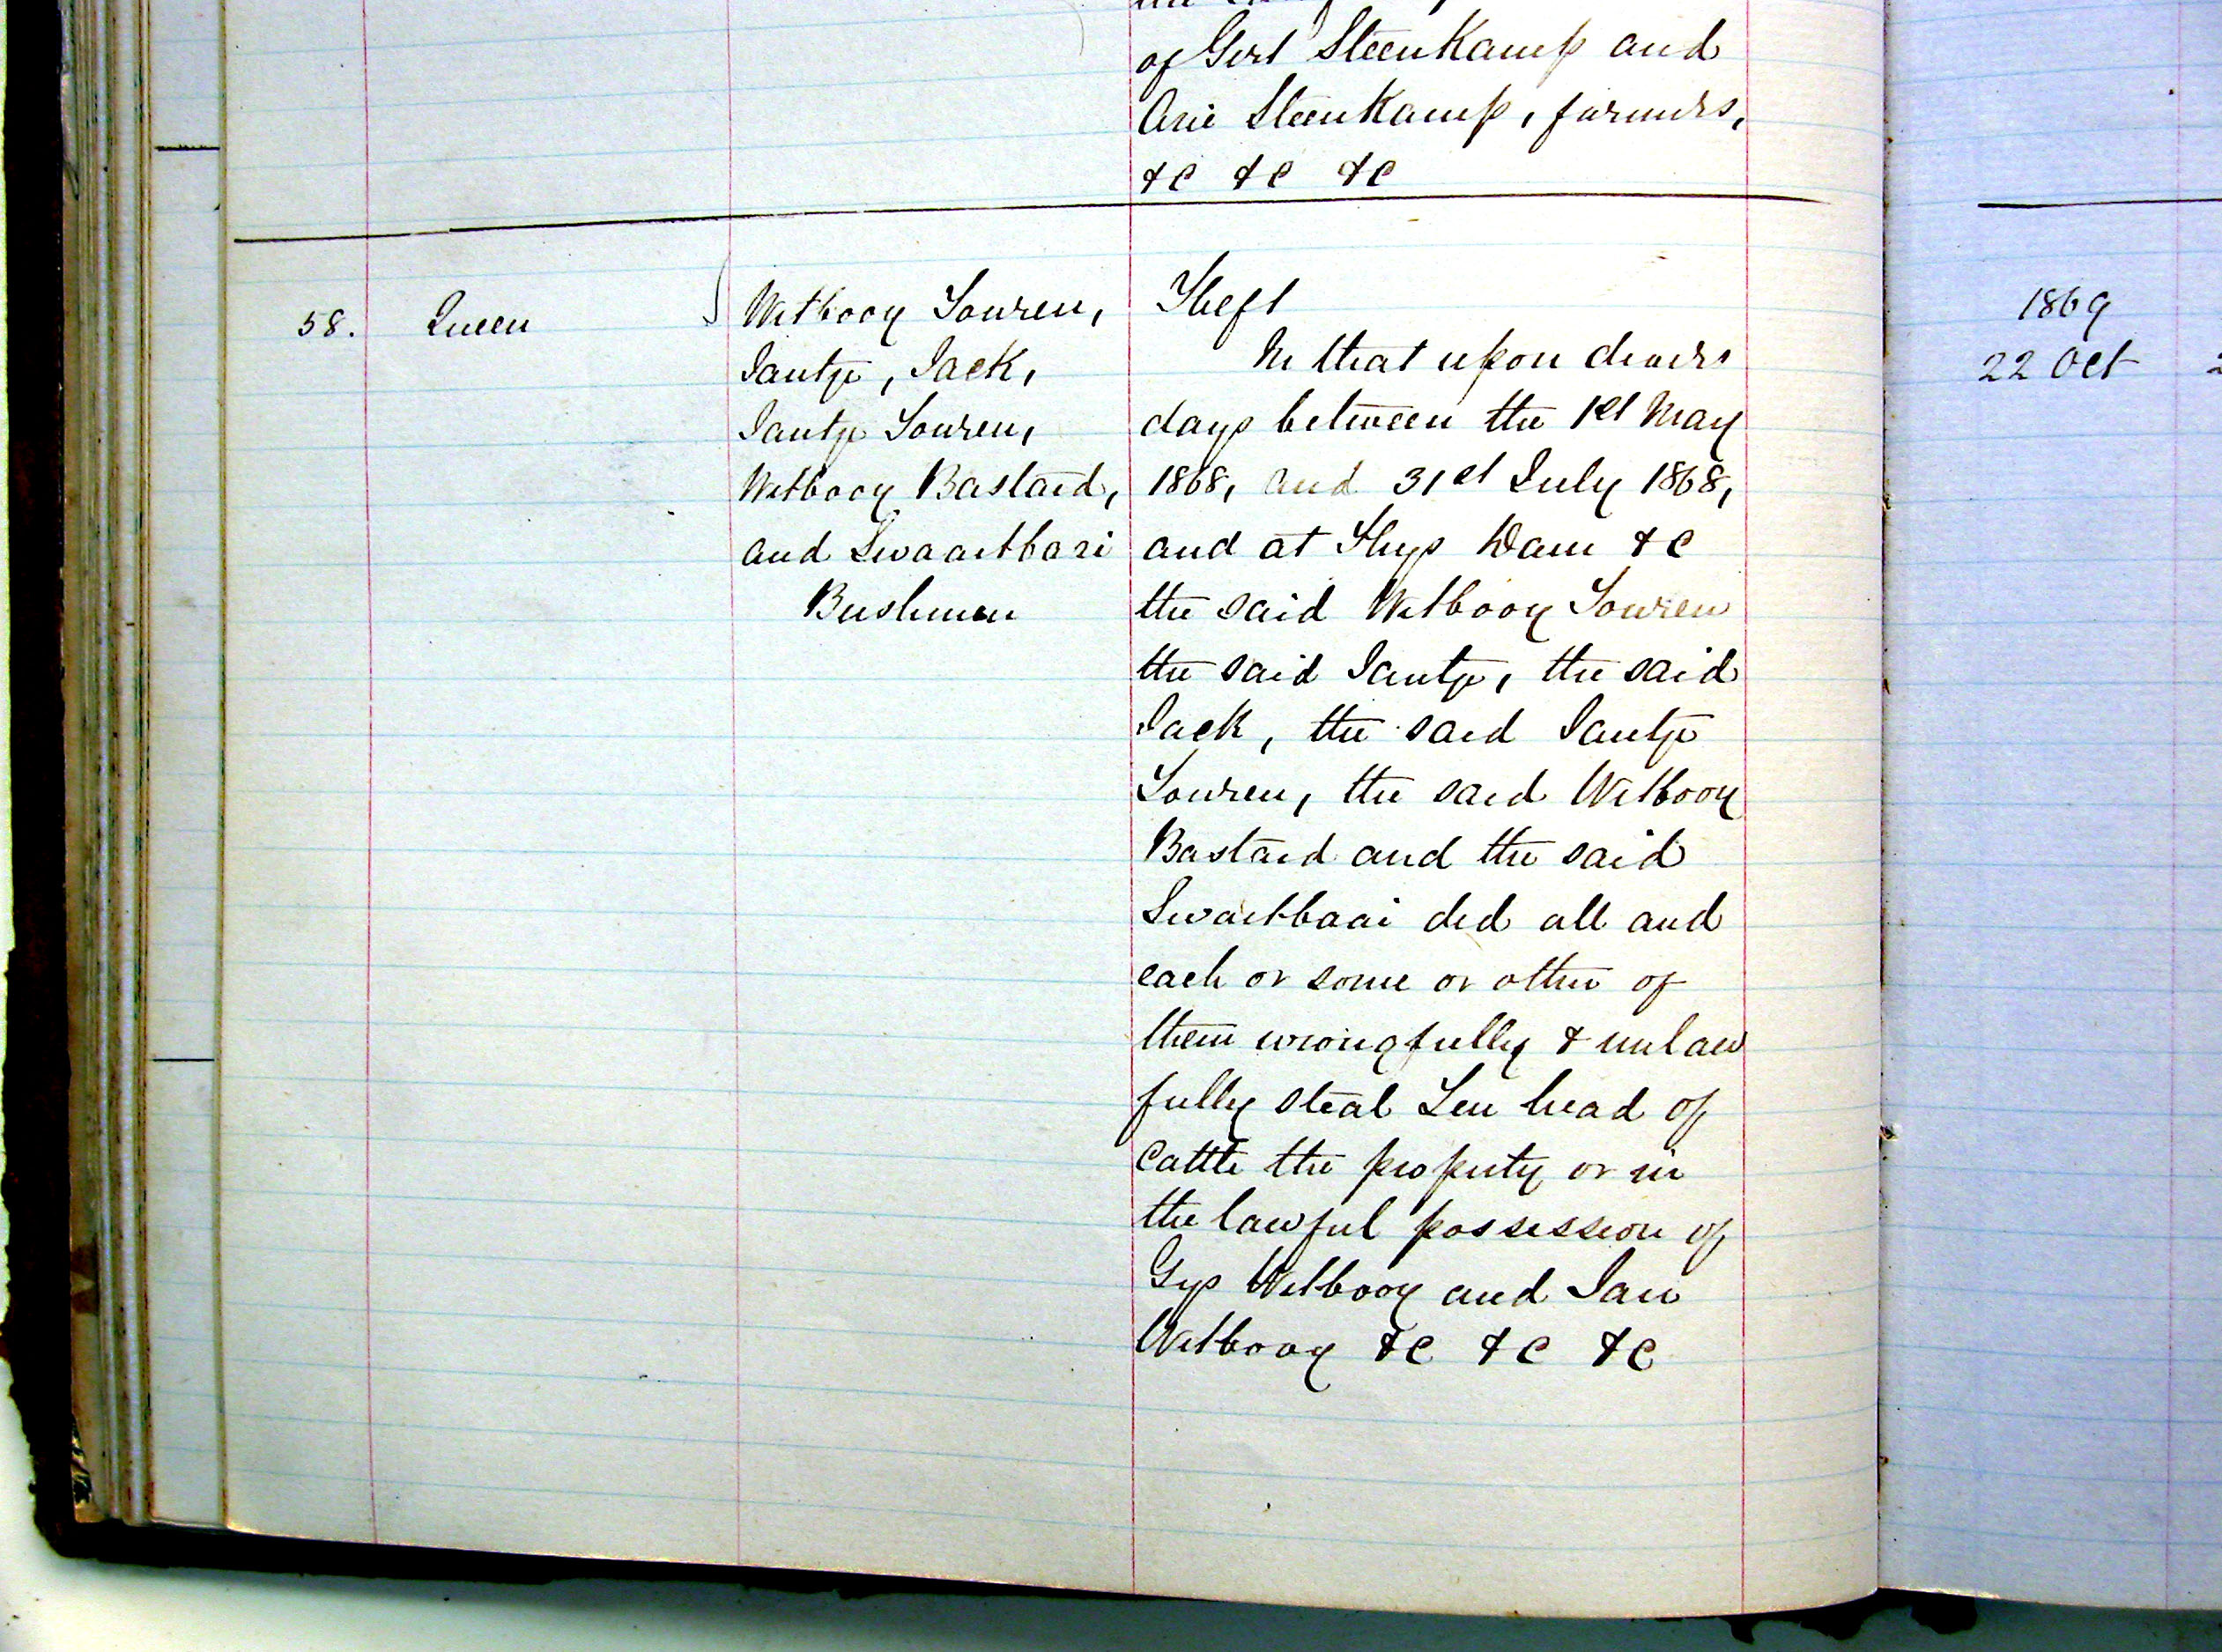 of Gert Steenkamp and
Arie Steenkamp, farmers,
&c &c &c
58.
Queen
Witbooy Touren,
Jantje, Jack,
Jantje Touren,
Witbooy Bastard,
and Swaartbooi
Bushmen
Theft
In that upon divers
days between the 1st May
1868, and 31st July 1868,
and at Thys Dam &c
the said Witbooy Touren
the said Jantje, the said
Jack, the said Jantje
Touren, the said Witbooy
Bastard and the said
Swartbaai did all and
each or some or other of
them wrongfully & unlaw
fully steal Ten head of
Cattle the property or in
the lawful possession of
Gys Witbooy and Jan
Witbooy &c &c &c
1869
22 Oct